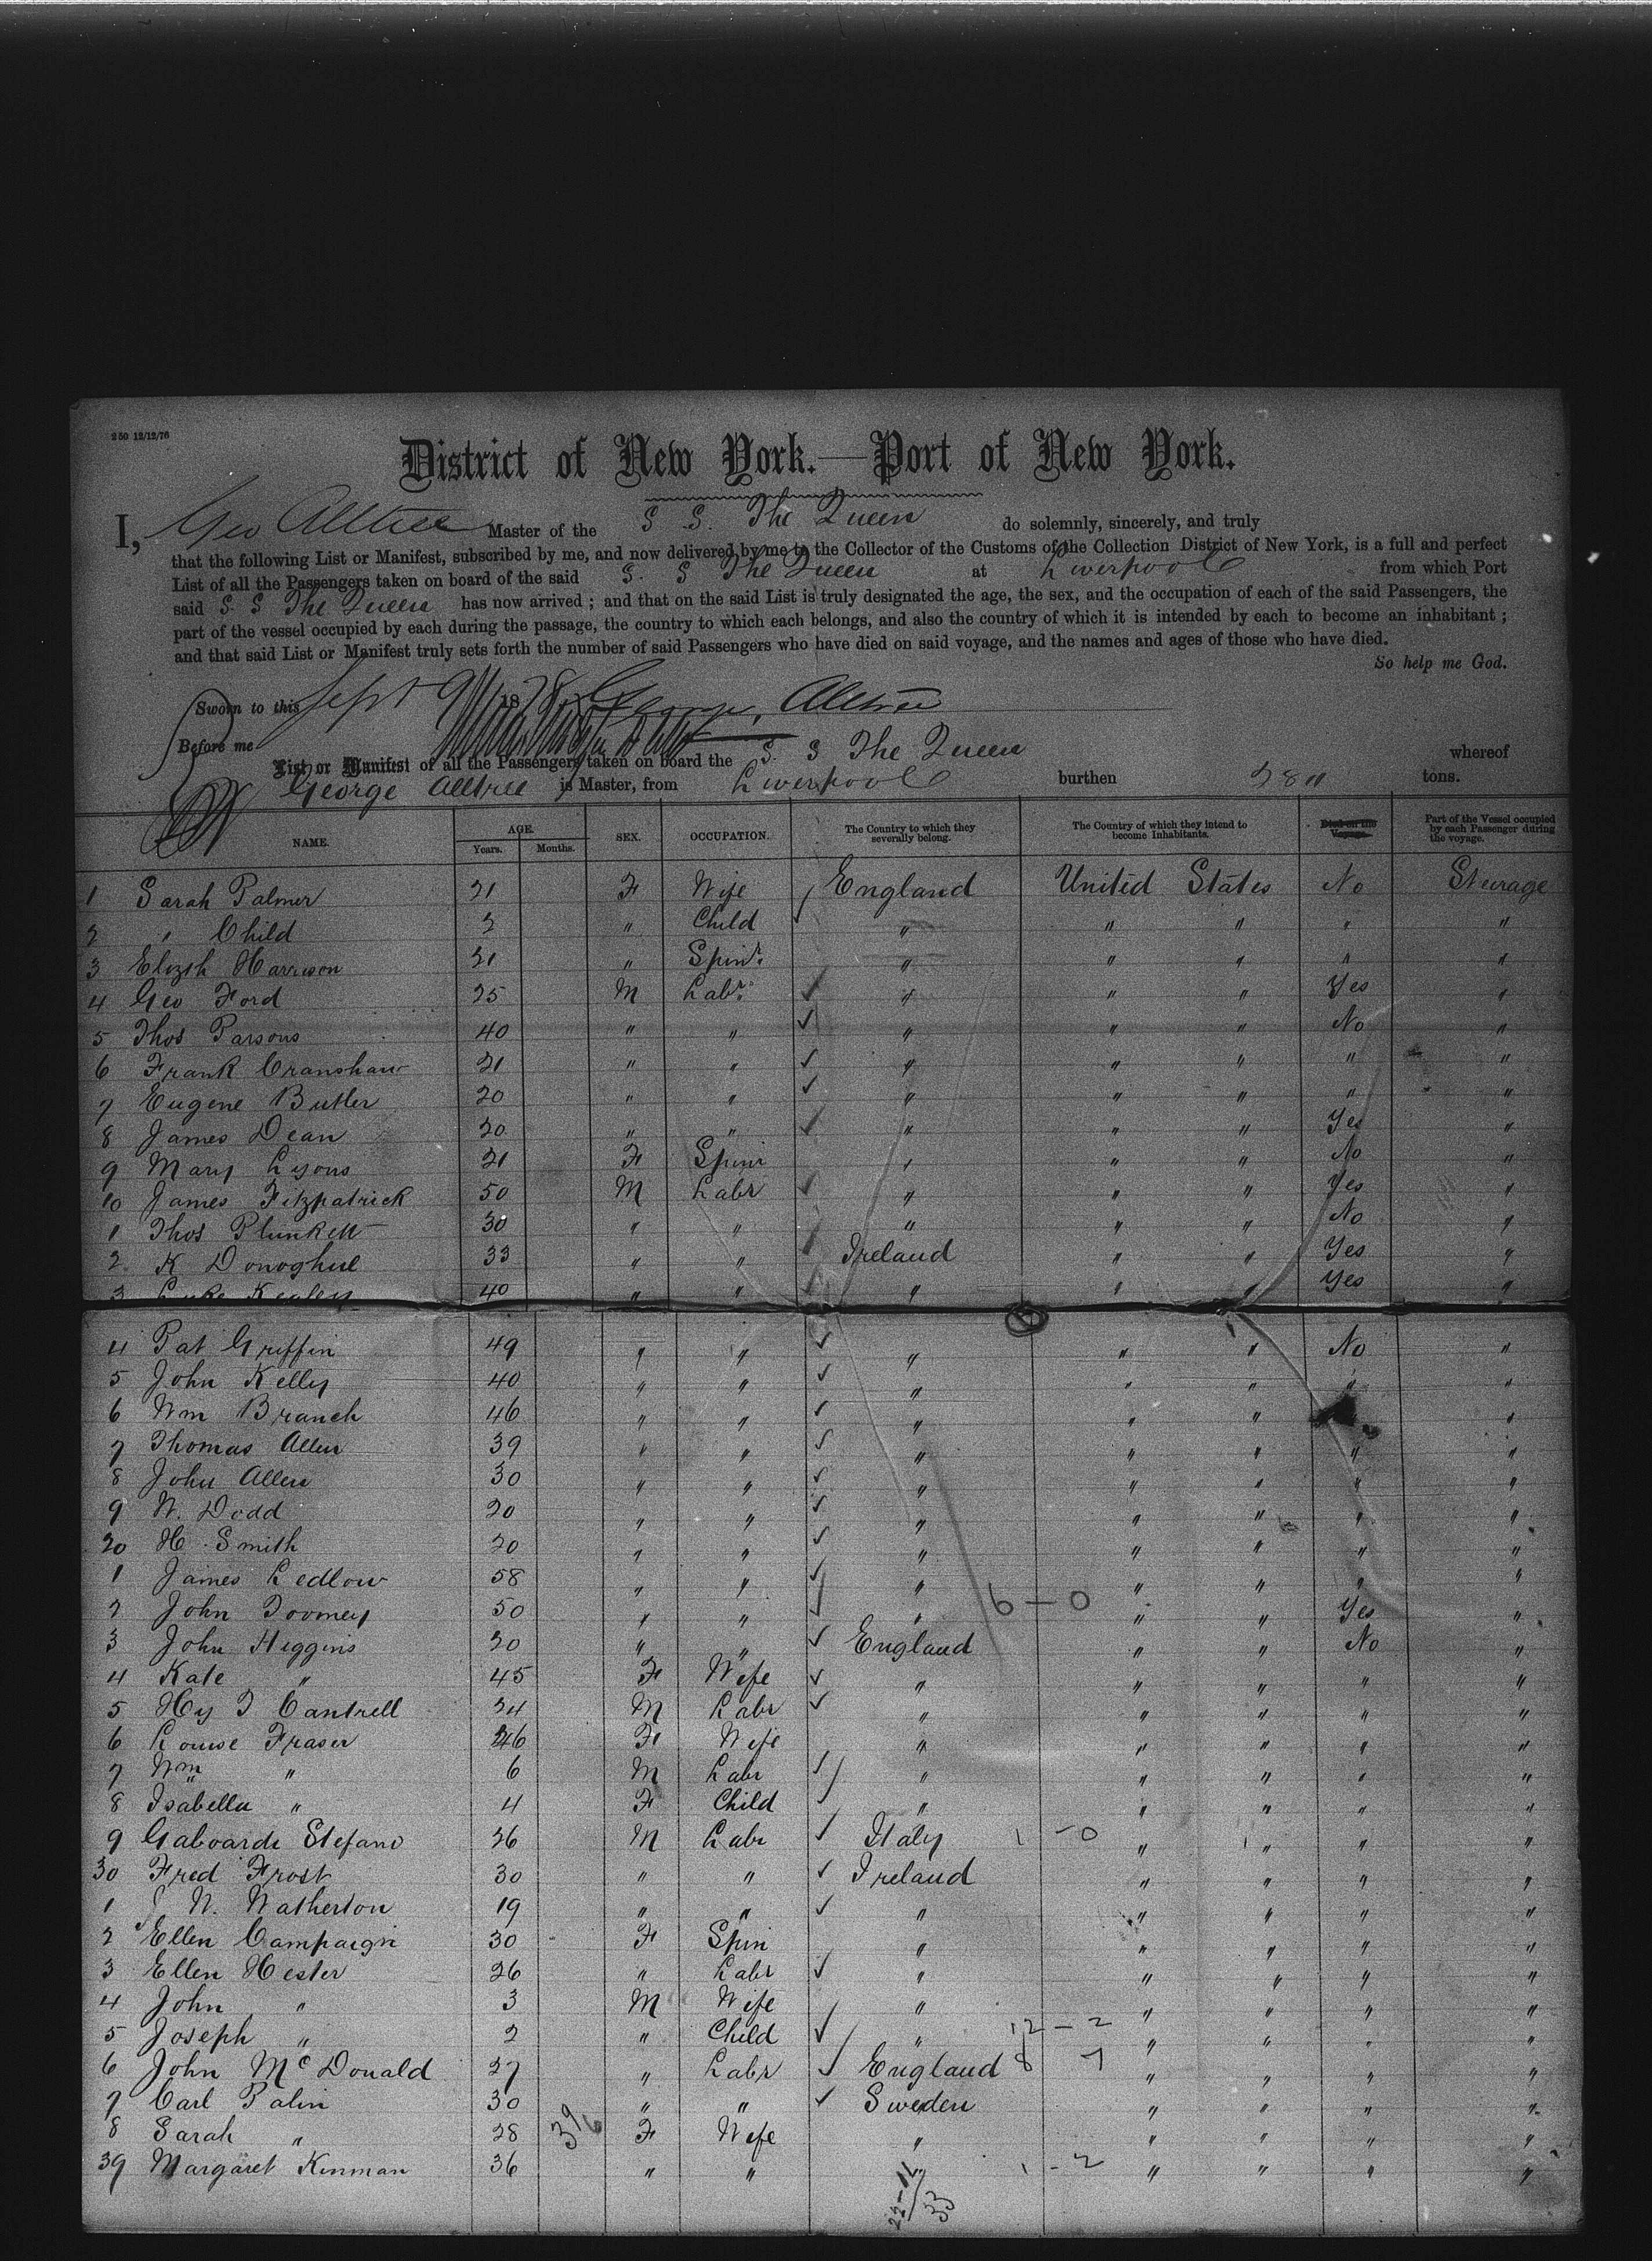 250 12/12/76
District of New York.—Port of New York.
I, Geo Alltree Master of the S S. The Queen do solemnly, sincerely, and truly
that the following List or Manifest, subscribed by me, and now delivered by me to the Collector of the Customs of the Collection District of New York, is a full and perfect
List of all the Passengers taken on board of the said S. S The Queen at Liverpool from which Port
said S. S The Queen has now arrived ; and that on the said List is truly designated the age, the sex, and the occupation of each of the said Passengers, the
part of the vessel occupied by each during the passage, the country to which each belongs, and also the country of which it is intended by each to become an inhabitant ;
and that said List or Manifest truly sets forth the number of said Passengers who have died on said voyage, and the names and ages of those who have died.
So help me God.
Sworn to this Sept 9 1878 George Alltree
Before me
List or Manifest of all the Passengers taken on board the S. S The Queen whereof
George Alltree is Master, from Liverpool burthen tons.
NAME. AGE. Years. Months. SEX. OCCUPATION. The Country to which they severally belong. The Country of which they intend to become Inhabitants. Died on the Voyage. Part of the Vessel occupied by each Passenger during the voyage.
1 Sarah Palmer 21 F Wife England United States No Steurage
2 " Child 2 " Child " " " " "
3 Elizth Harrison 21 " Spinr. " " " " "
4 Geo Ford 25 M Labr. " " " Yes "
5 Thos Parsons 40 " " " " " No "
6 Frank Cranshaw 21 " " " " " " "
7 Eugene Butler 20 " " " " " " "
8 James Dean 20 " " " " " Yes "
9 Mary Lyons 21 F Spinr " " " No "
10 James Fitzpatrick 50 M Labr " " " Yes "
1 Thos Plunkett 30 " " " " " No "
2 K Donoghue 33 " " Ireland " " Yes "
3 Luke Kealey 40 " " " " " Yes "
4 Pat Griffin 49 " " " " " No "
5 John Kelly 40 " " " " " " "
6 Wm Branch 46 " " " " " "
7 Thomas Allen 39 " " " " " " "
8 John Allen 30 " " " " " " "
9 W. Dodd 20 " " " " " " "
20 H. Smith 20 " " " " " " "
1 James Ledlow 58 " " " " " " "
2 John Toomey 50 " " " 6-0 " " Yes "
3 John Higgins 20 " " England " " No "
4 Kate " 45 F Wife " " " " "
5 Hy T Cantrell 24 M Labr " " " " "
6 Louise Fraser 26 F Wife " " " " "
7 Wm " 6 M Labr " " " " "
8 Isabella " 4 F Child " " " " "
9 Gaboardi Stefano 26 M Labr Italy 1-0 " " " "
30 Fred Frost 30 " " Ireland " " " "
1 W. Watherton 19 " " " " " " "
2 Ellen Campaign 30 F Spin " " " " "
3 Ellen Hester 26 " Labr " " " " "
4 John " 3 M Wife " " " " "
5 Joseph " 2 " Child " 12-2 " " " "
6 John McDonald 27 " Labr England 8 7 " " " "
7 Carl Palin 30 " " Sweden " " " "
8 Sarah " 28 F Wife " " " " "
39 Margaret Kinman 36 " " 1-2 " " " "
33